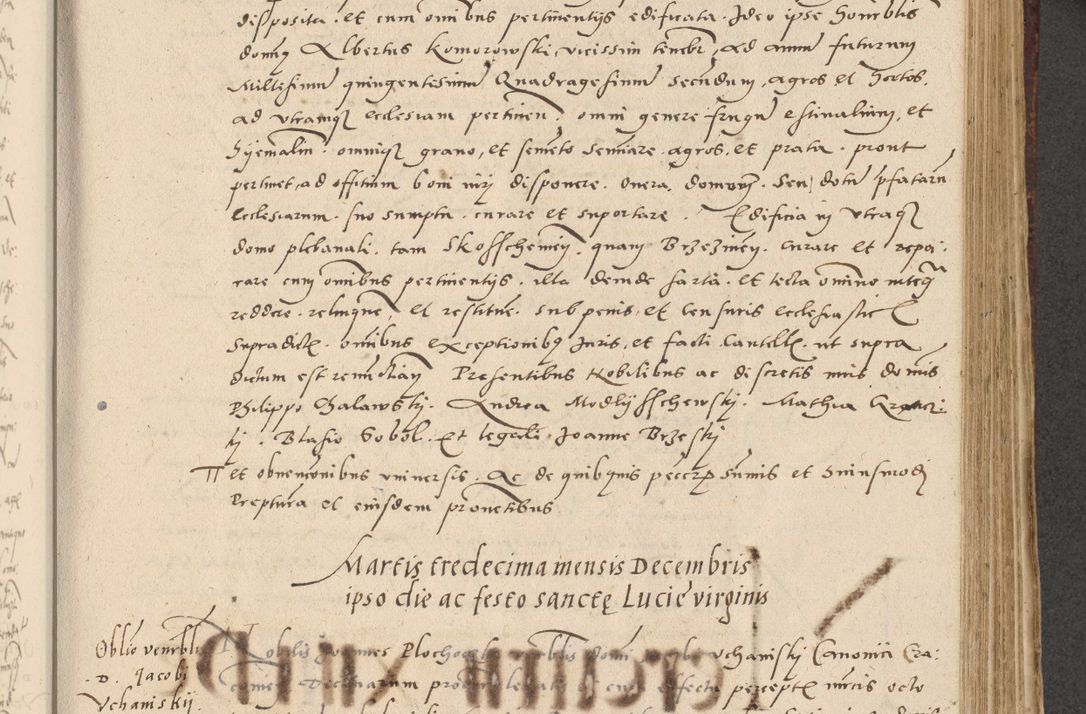 disposita. et cum omibus pertinentijs edificata. Ideo ipse honrblis
domn9 Albertus Komorowski, vicissim tenebr, ad annu futurum
Millesimu quingentesimu Quadragesimu Secundum, agros et hortos
ad vtramq ecclesiam pertinen. omni genere frugu estivalium, et
hyemaliu. omniq grano, et semeto semiare. agros, et prata. prout
pertinet, ad offitium boni viri disponere. Onera domorum. Seu dotu pfataru
Ecclesiarum. suo sumptu. curare et suportare. Edificia in vtraq
domo plebanali. tam Skoffchemien. quam Brzezinen. curare et repa:
rare cum omnibus pertinentijs. illa deinde sarta. et tecta omnino integra
reddere. relinquere, et restitue. sub penis, et censuris ecclesiastic
supradict. omibus exceptionibq Iuris, et facti. Cautell. ut supra
dictum est renuctiatis Presentibus Nobilibus ac discretis viris domis
Philippo Galawsky. Andrea Modlijsschewskj. Mathia
kj. Blasio Sobol. Et legali Joanne Brzeskj
et obvenconibus vniversis. Ac de quibquis pecer sumis et huiusmodj
Preptura et eiusdem provetibus
Martis tredecima mensis Decembris
ipso die ac festo sanctę Lucie virginis
Oblio venrblis
D. Jacobi
Vchanskij
Nobilis Joannes Vchanskj Canonici Cra:
Decimarum cum effectu percept mrcis octo